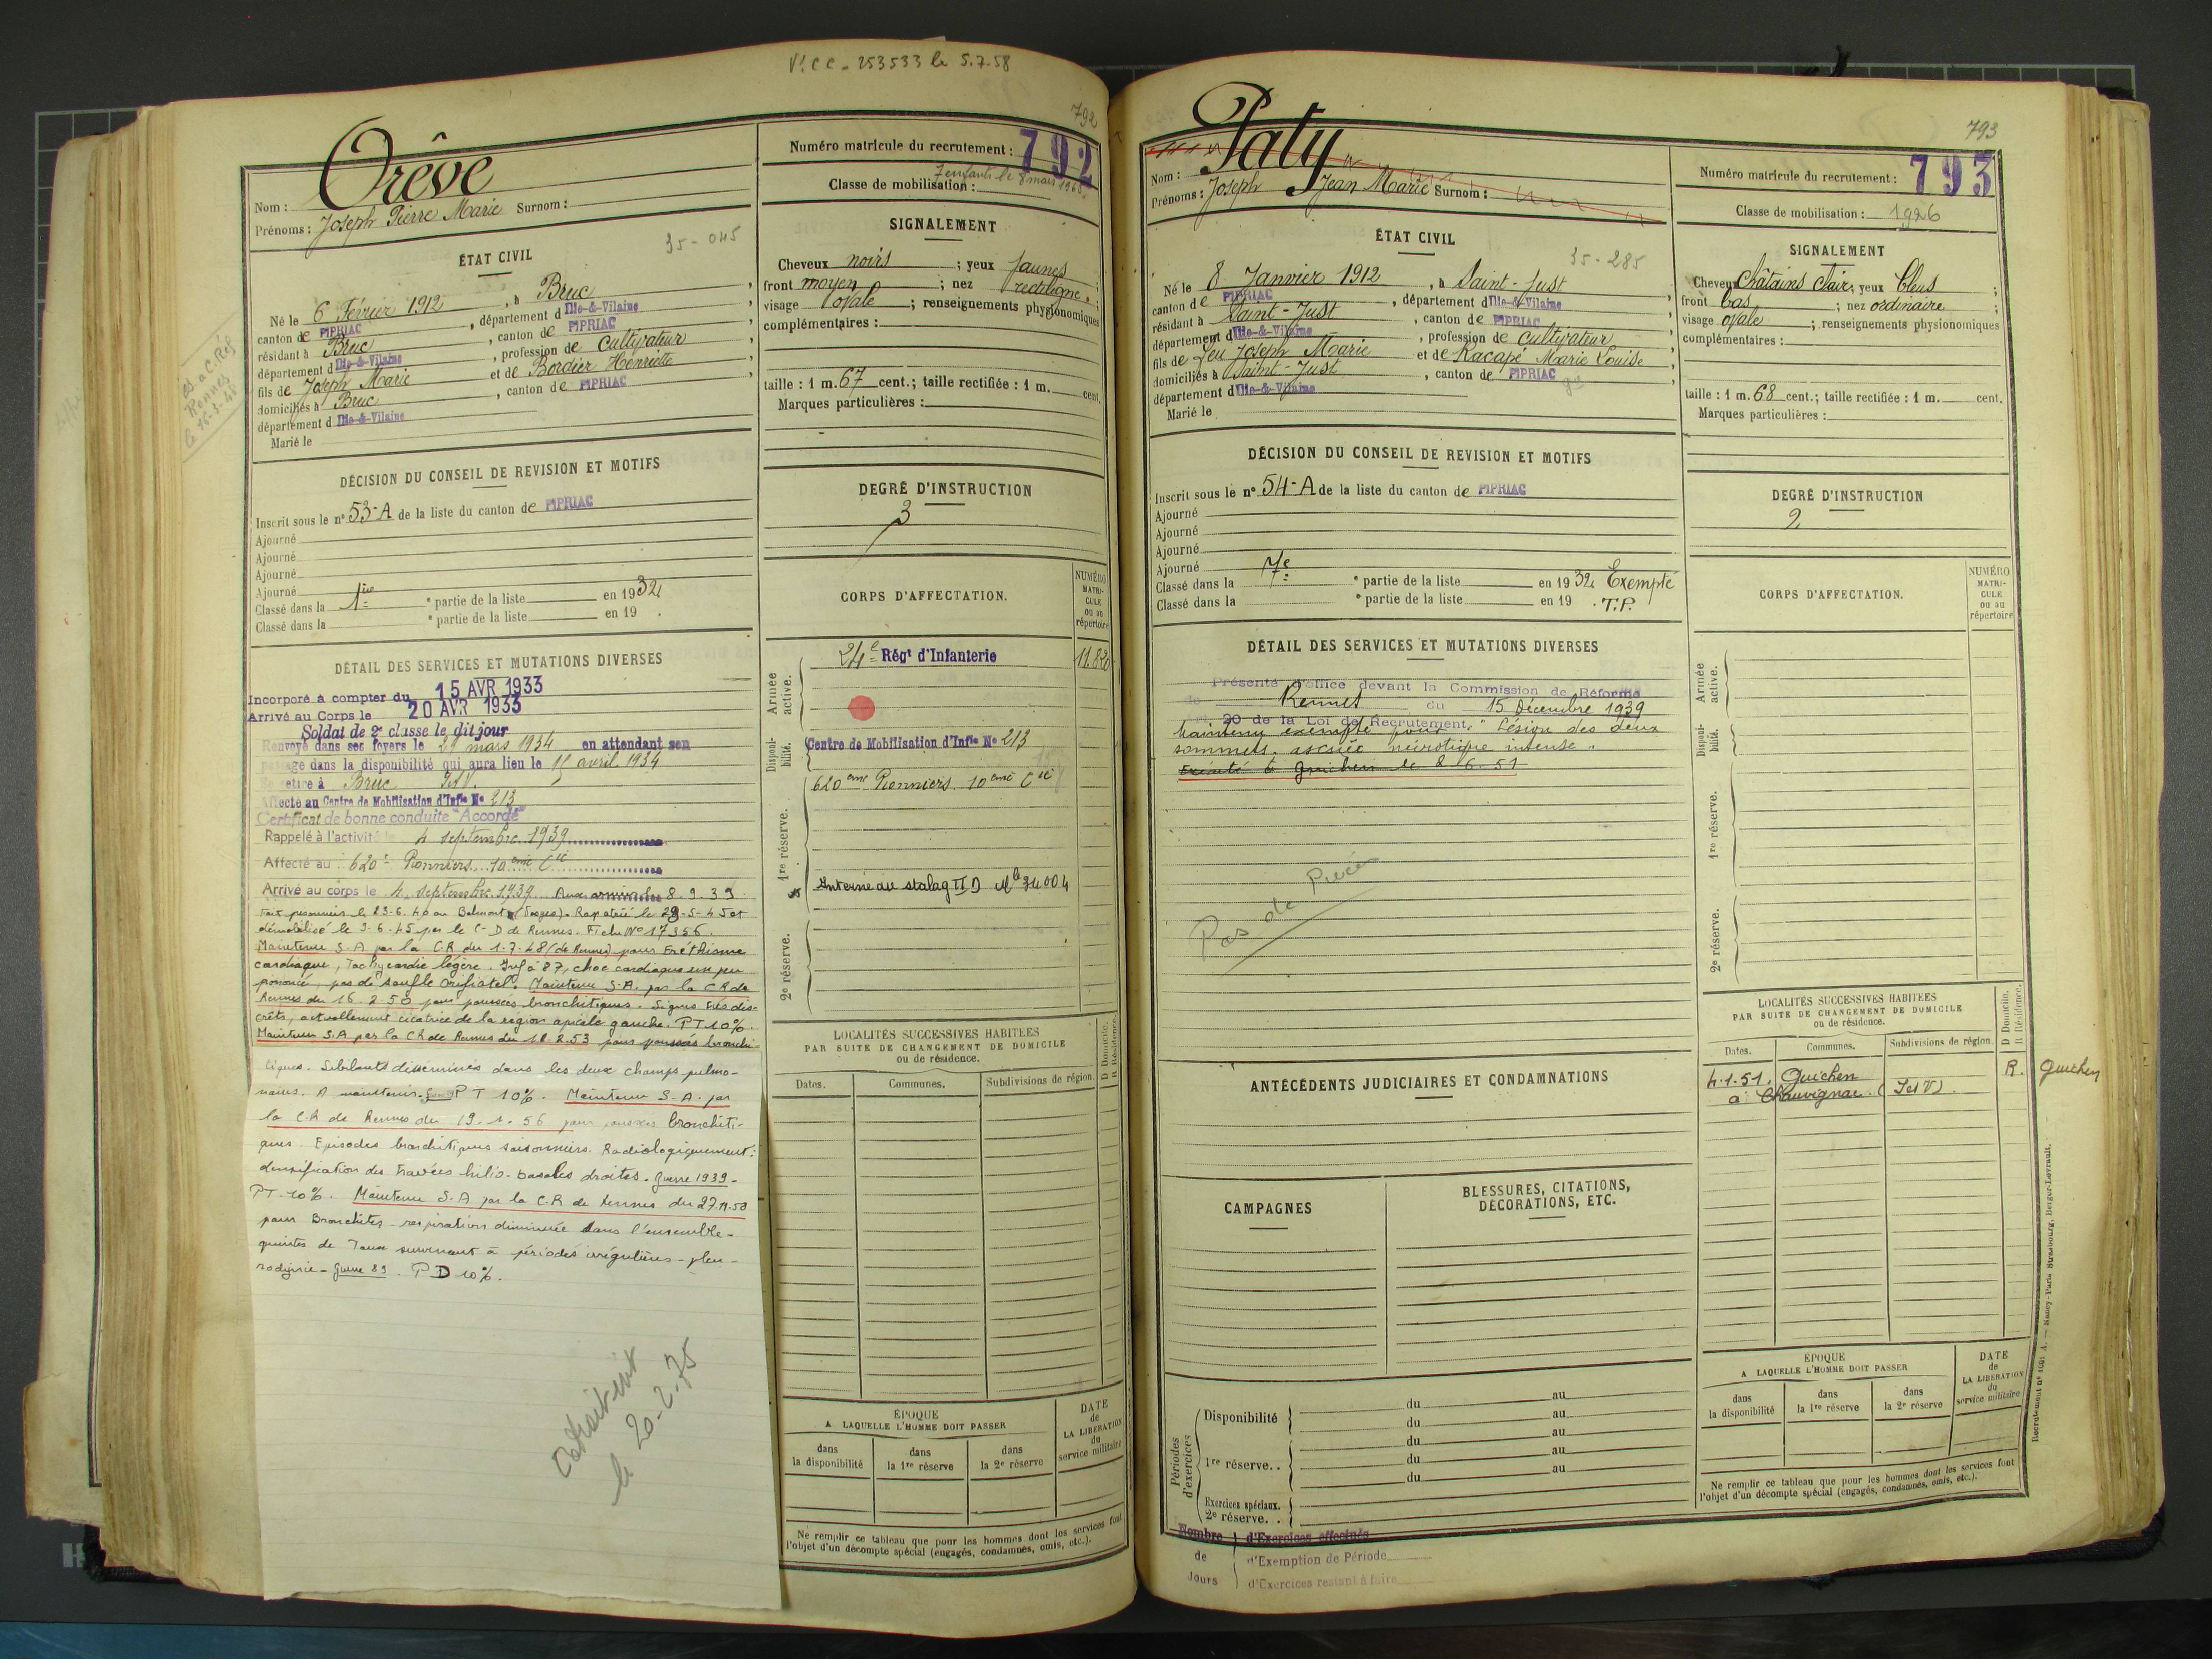 Vt. C C - 253533 le 5.7.58
792
Orêve
Nom :
Prénoms : Joseph Pierre Marie Surnom :
35-045
ÉTAT CIVIL
Né le 6 Février 1912, à Bruc,
canton de PIPRIAC, département d'Ille-&-Vilaine
résidant à Bruc, canton de PIPRIAC,
département d'Ille-&-Vilaine, profession de Cultivateur,
fils de Joseph Marie et de Bordier Henriette
domiciliés à Bruc, canton de PIPRIAC,
département d'Ille-&-Vilaine
Marié le
Rennes
DÉCISION DU CONSEIL DE REVISION ET MOTIFS
Inscrit sous le n° 53-A de la liste du canton de PIPRIAC
Ajourné
Ajourné
Ajourné
Ajourné
Classé dans la 1ère e partie de la liste en 1932
Classé dans la e partie de la liste en 19 .
DÉTAIL DES SERVICES ET MUTATIONS DIVERSES
Incorporé à compter du 15 AVR 1933
Arrivé au Corps le 20 AVR 1933
Soldat de 2e classe le dit jour
Renvoyé dans ses foyers le mars 1934 en attendant son
passage dans la disponibilité qui aura lieu le 15 avril 1934
Se retire à Bruc I&V.
Affecté au Centre de Mobilisation d'Infie No 213
Certificat de bonne conduite "Accordé"
Rappelé à l'activité le 4 septembre 1939
Affecté au 620e Pionniers 10eme Cie
Arrivé au corps le 4 septembre 1939 Aux armées le 8.9.39
Fait prisonnier le 23.6.40 au Belmont (Vosges). Rapatrié le 29-5-45 et
démobilisé le 3.6.45 par le C-D de Rennes. Fiche No 17356.
Maintenu S.A par la C.R du 1.7.48 (de Rennes) pour Eréthisme
cardiaque, Tachycardie légère. Inf à 87, choc cardiaque un peu
prononcé, pas de souffle orificiel. Maintenu S.A. par la C R de
Rennes du 16.2.50 pour poussées bronchitiques. Signes très dis-
crets, actuellement cicatrice de la région apicale gauche. PT 10%.
Maintenu S.A par la CR de Rennes du 18.2.53 pour poussées bronchi-
tiques. Sibilants disséminés dans les deux champs pulmo-
naires. A maintenir. PT 10%. Maintenu S.A. par
la C.R de Rennes du 19.1.56 pour poussées bronchiti-
ques. Episodes bronchitiques saisonniers. Radiologiquement :
densification des travées hilio-basales droites. Guerre 1939-
PT-10%. Maintenu S.A par la C.R de Rennes du 27.11.58
pour Bronchites - respiration diminuée dans l'ensemble -
quintes de Toux survenant à périodes irrégulières - pleu-
rodynie - Guerre 39. PD 10%.
le 20-2-75
Numéro matricule du recrutement : 792
7 enfants le 8 mars 1965
Classe de mobilisation :
SIGNALEMENT
Cheveux noirs ; yeux jaunes ;
front moyen ; nez rectiligne ;
visage ovale ; renseignements physionomiques
complémentaires :
taille : 1 m. 67 cent.; taille rectifiée : 1 m. cent.
Marques particulières :
DEGRÉ D'INSTRUCTION
3
CORPS D'AFFECTATION.
NUMÉRO MATRI- CULE ou au répertoire
Armée active.
24e Régt d'Infanterie
11.820
Disponi- bilité.
Centre de Mobilisation d'Infie No 213
1re réserve.
620eme Pionniers. 10eme Cie
Interné au stalag II D Mle 74004
2e réserve.
LOCALITÉS SUCCESSIVES HABITÉES
PAR SUITE DE CHANGEMENT DE DOMICILE
ou de résidence.
D Domicile. R Résidence.
Dates. Communes. Subdivisions de région.
ÉPOQUE
A LAQUELLE L'HOMME DOIT PASSER
dans la disponibilité
dans la 1re réserve
dans la 2e réserve
DATE de LA LIBÉRATION du service militaire
Ne remplir ce tableau que pour les hommes dont les services font
l'objet d'un décompte spécial (engagés, condamnés, omis, etc.).
793
Paty
Nom :
Prénoms : Joseph Jean Marie Surnom :
35-285
ÉTAT CIVIL
Né le 8 Janvier 1912, à Saint-Just
canton de PIPRIAC, département d'Ille-&-Vilaine
résidant à Saint-Just, canton de PIPRIAC,
département d'Ille-&-Vilaine, profession de Cultivateur,
fils de feu Joseph Marie et de Racapé Marie Louise
domiciliés à Saint-Just, canton de PIPRIAC
département d'Ille-&-Vilaine
Marié le
DÉCISION DU CONSEIL DE REVISION ET MOTIFS
Inscrit sous le n° 54-A de la liste du canton de PIPRIAC
Ajourné
Ajourné
Ajourné
Ajourné
Classé dans la 7e e partie de la liste en 1932 Exempté
Classé dans la e partie de la liste en 19 . T.P.
DÉTAIL DES SERVICES ET MUTATIONS DIVERSES
Présenté d'office devant la Commission de Réforme
de Rennes du 15 décembre 1939
20 de la Loi de Recrutement.
Maintenu exempté pour "Lésion des deux
sommets. ascaée névrotique intense".
à Guichen le 2.6.51
Pas de Pièce
ANTÉCÉDENTS JUDICIAIRES ET CONDAMNATIONS
CAMPAGNES
BLESSURES, CITATIONS, DÉCORATIONS, ETC.
Périodes d'exercices
Disponibilité
du au
du au
1re réserve. .
du au
du au
du au
Exercices spéciaux.
2e réserve. .
Nombre d'Exercices effectués
de d'Exemption de Période
Jours d'Exercices restant à faire
Numéro matricule du recrutement : 793
Classe de mobilisation : 1926
SIGNALEMENT
Cheveux châtains clair ; yeux bleus ;
front bas ; nez ordinaire ;
visage ovale ; renseignements physionomiques
complémentaires :
taille : 1 m. 68 cent.; taille rectifiée : 1 m. cent.
Marques particulières :
DEGRÉ D'INSTRUCTION
2
CORPS D'AFFECTATION.
NUMÉRO MATRI- CULE ou au répertoire
Armée active.
Disponi- bilité.
1re réserve.
2e réserve.
LOCALITÉS SUCCESSIVES HABITÉES
PAR SUITE DE CHANGEMENT DE DOMICILE
ou de résidence.
D Domicile. R Résidence.
Dates. Communes. Subdivisions de région.
4.1.51. Guichen R. Guichen
à Chauvignac (I et V)
ÉPOQUE
A LAQUELLE L'HOMME DOIT PASSER
dans la disponibilité
dans la 1re réserve
dans la 2e réserve
DATE de LA LIBÉRATION du service militaire
Ne remplir ce tableau que pour les hommes dont les services font
l'objet d'un décompte spécial (engagés, condamnés, omis, etc.).
Nancy-Paris Strasbourg, Berger-Levrault.